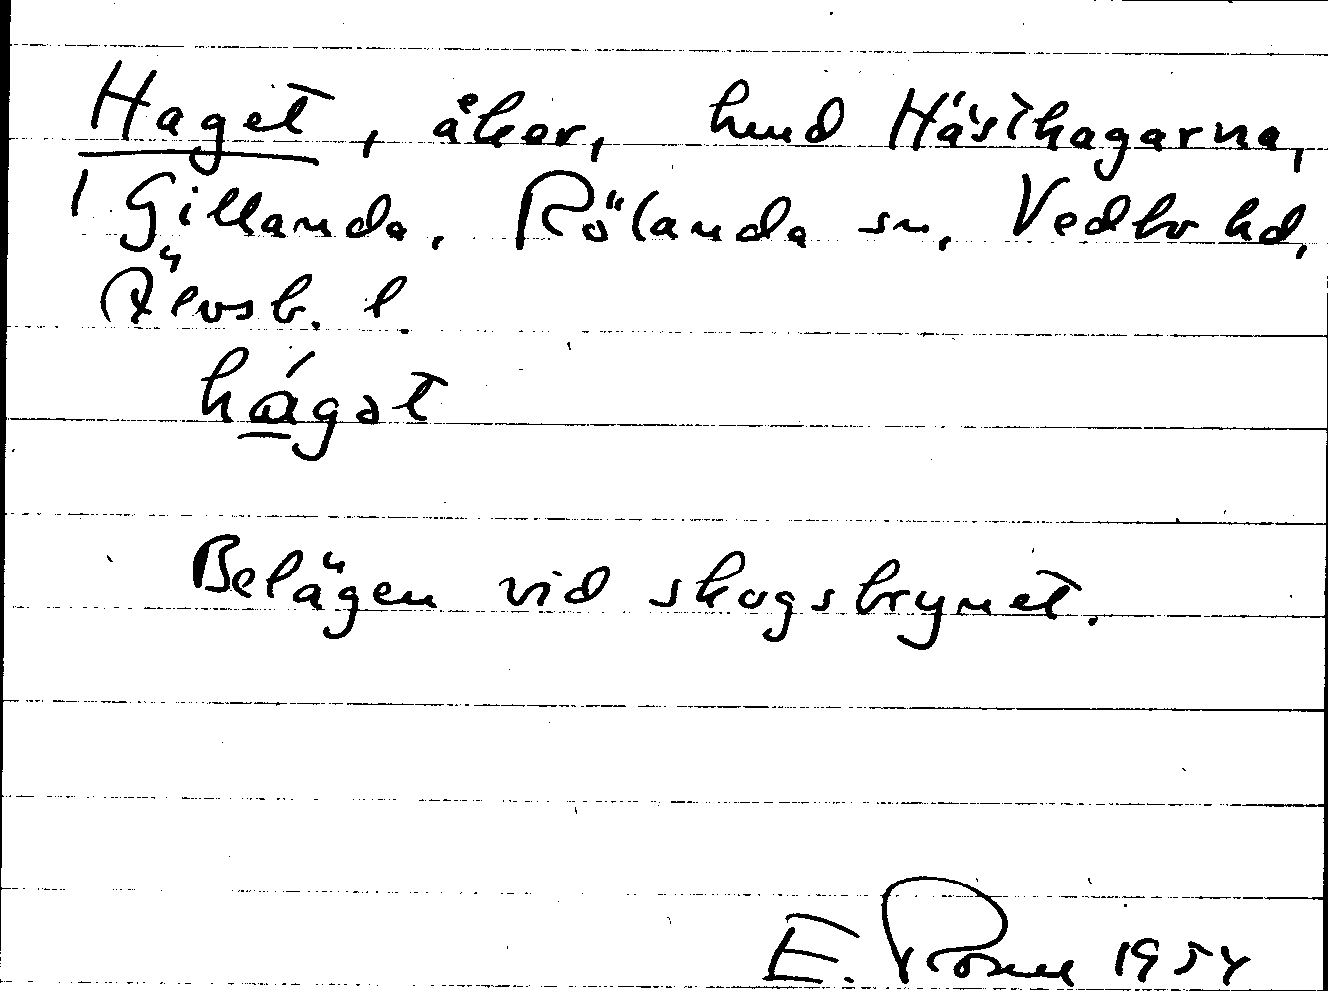 Haget, åker, hmd Hästhagarna,
1 Gillanda, Rölanda sn, Vedbo hd,
Älvsb. l.
hágət
Belägen vid skogsbrynet.
E. 1954